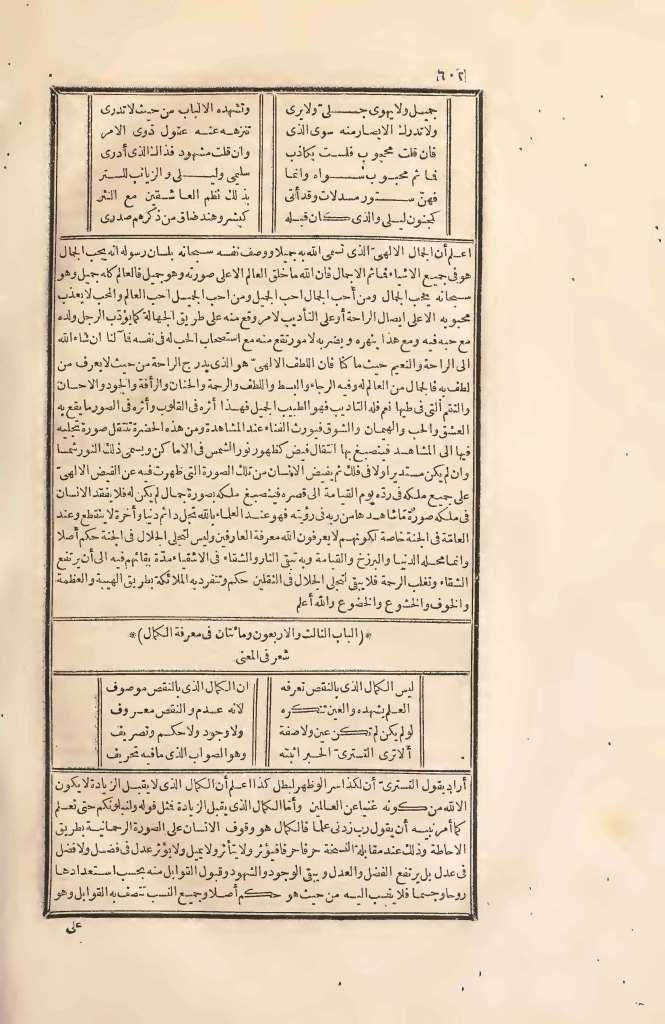 ٦٠٢
جميل ولا يهوى جلي ولا يرى وتشهده الالباب من حيث لا تدرى
ولا تدرك الابصار منه سوى الذى تنزهه عنه عقول ذوى الامر
فان قلت محجوب فلست بكاذب وان قلت مشهود فذاك الذى أدرى
فما ثم محبوب سواه وانما سليمى وليلى والزيانب للستر
فهن ستور مسدلات وقد أتى بذلك نظم العاشقين مع النثر
كمجنون ليلى والذى كان قبله كبشر وهند ضاق من ذكرهم صدرى
اعلم أن الجمال الالهى الذى تسمى الله به جميلا ووصف نفسه سبحانه بلسان رسوله انه يحب الجمال
هو فى جميع الاشياء فما ثم الاجمال فان الله ما خلق العالم الاعلى صورته وهو جميل فالعالم كله جميل وهو
سبحانه يحب الجمال ومن أحب الجمال احب الجميل ومن احب الجميل احب العالم والمحب لا يعذب
محبوبه الا على ايصال الراحة أو على التأديب لامر وقع منه على طريق الجهالة كما يؤدب الرجل ولده
مع حبه فيه ومع هذا ينهره ويضربه لامور تقع منه مع استصحاب الحب له فى نفسه فما آلنا ان شاء الله
الى الراحة والنعيم حيث ما كنا فان اللطف الالهى هو الذى يدرج الراحة من حيث لا يعرف من
لطف به فالجمال من العالم له وفيه الرجاء والبسط واللطف والرحمة والحنان والرأفة والجود والاحسان
والنقم التى فى طيها نعم فله التاديب فهو الطبيب الجميل فهذا أثره فى القلوب وأثره فى الصور ما يقع به
العشق والحب والهيمان والشوق فيورث الفناء عند المشاهدة ومن هذه الحضرة تنتقل صورة تجليه
فيها الى المشاهد فينصبغ بها انتقال فيض كظهور نور الشمس فى الاماكن ويسمى ذلك النور شمسا
وان لم يكن مستديرا ولا فى فلك ثم يفيض الانسان من تلك الصورة التى ظهرت فيه عن الفيض الالهى
على جميع ملكه فى رده يوم القيامة الى قصره فينصبغ ملكه بصورة جمال لم يكن له فلا يفقد الانسان
فى ملكه صورة ما شاهدها من ربه فى رؤيته فهو عند العلماء بالله تجل دائم دنيا وآخرة لا ينقطع وعند
العامة فى الجنة خاصة لكونهم لا يعرفون الله معرفة العارفين وليس لتجلى الجلال فى الجنة حكم أصلا
وانما محله الدنيا والبرزخ والقيامة وبه تبقى النار والشقاء فى الاشقياء مدة بقائهم فيه الى أن يرتفع
الشقاء وتغلب الرحمة فلا يبقى لتجلى الجلال فى الثقلين حكم وتنفرد به الملائكة بطريق الهيبة والعظمة
والخوف والخشوع والخضوع والله أعلم
*(الباب الثالث والاربعون ومائتان فى معرفة الكمال)*
شعر فى المعنى
ليس الكمال الذى بالنقص تعرفه ان الكمال الذى بالنقص موصوف
العلم يشهده والعين تنكره لانه عدم والنقص معروف
لو لم يكن لم تكن عين ولا صفة ولا وجود ولا حكم وتصريف
ألا ترى التسترى الحبر اثبته وهو الصواب الذى ما فيه تحريف
أراد بقول التسترى أن لكذا سر الو ظهر لبطل كذا اعلم أن الكمال الذى لا يقبل الزيادة لا يكون
الا لله من كونه غنيا عن العالمين وأما الكمال الذى يقبل الزيادة فمثل قوله ولنبلونكم حتى نعلم
كما أمر نبيه أن يقول رب زدنى علما فالكمال هو وقوف الانسان على الصورة الرحمانية بطريق
الاحاطة وذلك عند مقابلة النسخة حرفا حرفا فيؤثر ولا يتأثر ولا يميل ولا يؤثر عدل فى فضل ولا فضل
فى عدل بل يرتفع الفضل والعدل ويبقى الوجود والشهود وقبول القوابل منه بحسب استعدادها
روحا وجسما فلا ينسب اليه من حيث هو حكم أصلا وجميع النسب تتصف به القوابل وهو
على